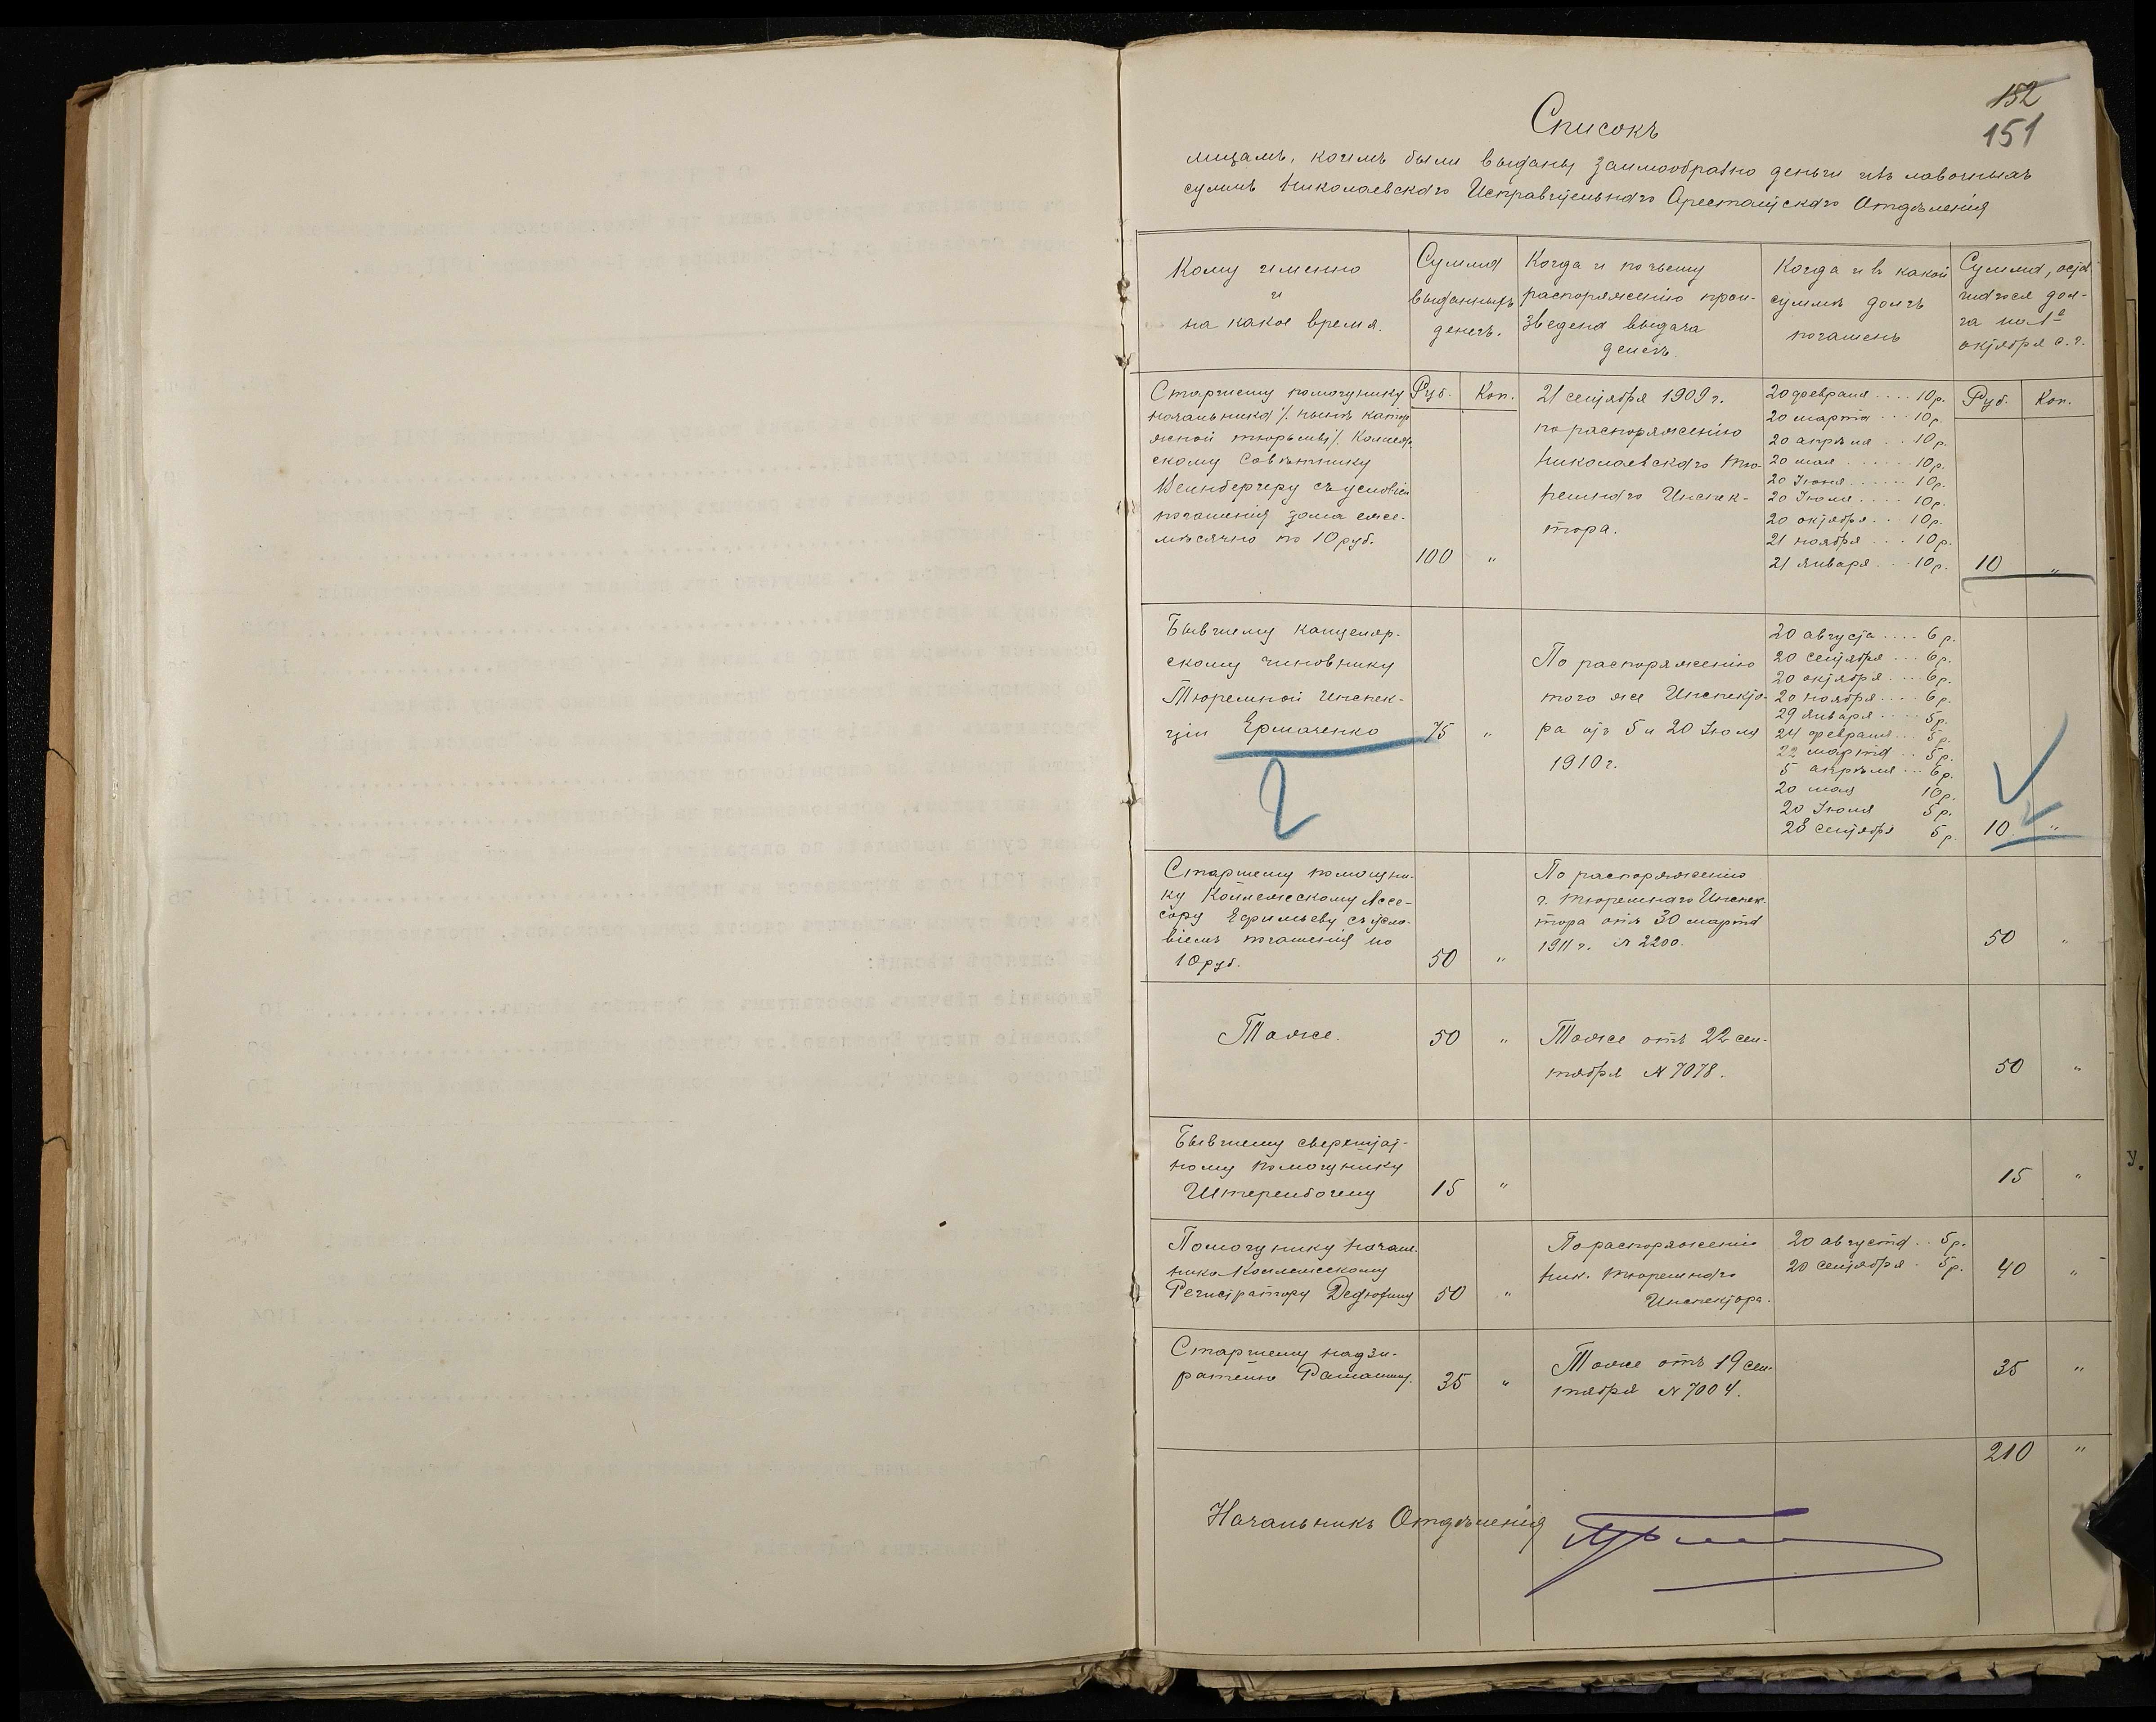 152
151
Списокъ
лицамъ, коимъ были выданы заимообразно деньги изъ лавочныхъ
суммъ Николаевскаго Исправительнаго Арестантскаго Отдѣленія
Кому именно
и
на какое время.
Сумма
выданныхъ
денегъ.
Когда и по чьему
распоряженію прои-
зведена выдача
денегъ.
Когда и въ какой
суммѣ долгъ
погашенъ
Сумма, оста
гося дол-
га на 1е
октября с. г.
Старшему помощнику
начальника /. нынѣ катор
жной тюрьмы /. Коллеж.
скому Совѣтнику
Вейнбергеру съ условіем
погашенія займа еже-
мѣсячно по 10 руб.
Руб. Коп.
100 "
21 сентября 1909 г.
по распоряженію
Николаевскаго Тю-
ремнаго Инспек-
тора.
20 февраля .... 10 р.
20 марта ... 10 р.
20 апрѣля .. 10 р.
20 мая ...... 10 р.
20 Іюня ...... 10 р.
20 Іюля .... 10 р.
20 октября .. 10 р.
21 ноября ... 10 р.
21 января ... 10 р.
Руб. Коп.
10 "
Бывшему канцеляр-
скому чиновнику
Тюремной Инспек-
ціи Ермаченко
75 "
По распоряженію
того же Инспекто-
ра отъ 5 и 20 Іюля
1910 г.
20 августа .... 6 р.
20 сентября ... 6 р.
20 октября ... 6 р.
20 ноября ... 6 р.
29 января .... 5 р.
24 февраля ... 5 р.
22 марта .. 5 р.
5 апрѣля ... 6 р.
20 мая 10 р.
20 Іюня 5 р.
28 сентября 5 р.
10 "
Старшему помощни-
ку Коллежскому Ассе-
сору Ефимьеву съ усло-
віемъ погашенія по
10 руб.
50 "
По распоряженію
г. Тюремнаго Инспек.
тора отъ 30 марта
1911 г. № 2200.
50 "
Тоже.
50 "
Тоже отъ 22 сен-
тября № 7078.
50 "
Бывшему сверхштат-
ному помощнику
15 "
15 "
Помощнику Начал.
ника Коллежскому
Регистратору Дедюхину
50 "
По распоряженію
Ник. Тюремнаго
Инспектора.
20 августа .. 5 р.
20 сентября . 5 р.
40 "
Старшему надзи-
рателю
35 "
Тоже отъ 19 сен-
тября № 7004.
35 "
210 "
Начальникъ Отдѣленія